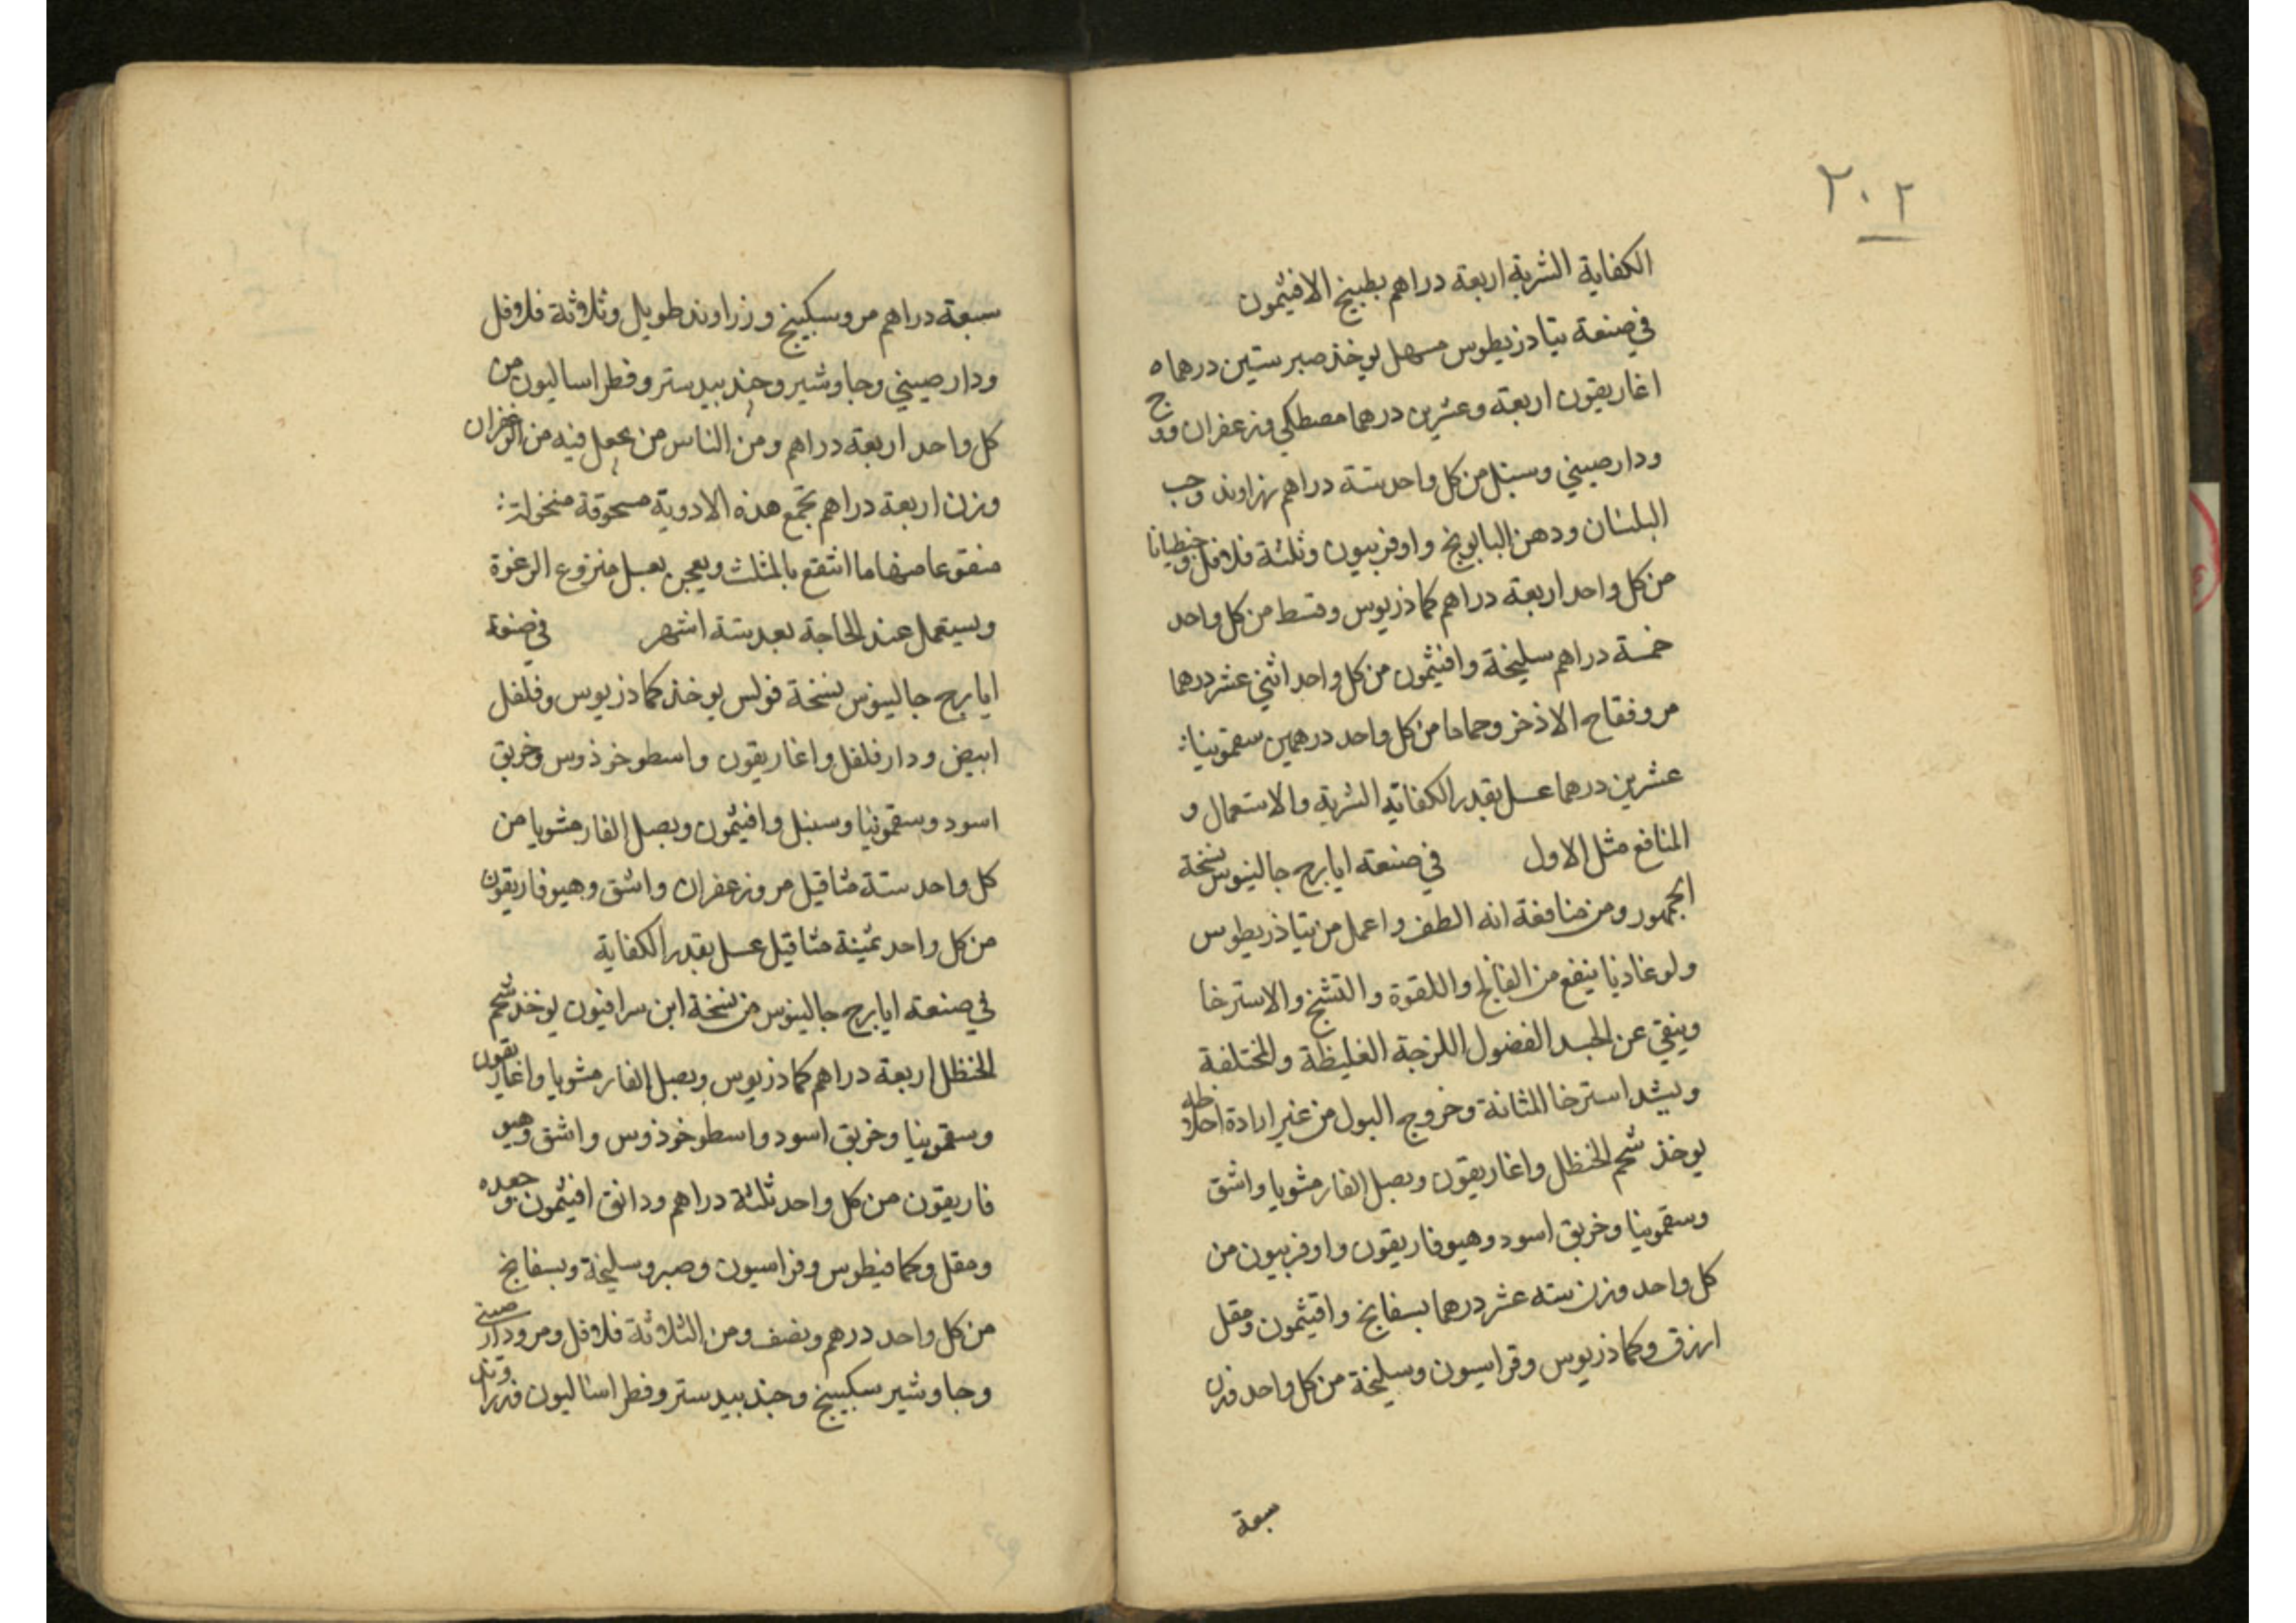 ٢٠٢
الكفاية الشربة اربعة دراهم بطبيخ الافيثمون
في صنعة تيادزيطوس مسهل يوخذ صبر ستين درهما ه
اغاريقون اربعة وعشرين درهما مصطكي وزعفران ووج
ودارصيني وسنبل من كل واحد ستة دراهم زراوند وحب
البلسان ودهن البابونج واوفربيون وثلثة فلافل وجنطيانا
من كل واحد اربعة دراهم كماذريوس وقسط من كل واحد
خمسة دراهم سليخة وافيثمون من كل واحد اثني عشر درهما
مر وفقاح الاذخر وحماما من كل واحد درهمين سقمونيا
عشرين درهما عسل بقدر الكفاية الشربة والاستعمال و
المنافع مثل الاول في صنعة ايارج جالينوس نسخة
الجمهور ومن منافعة انه الطف واعمل من تياذريطوس
ولوغاذيا ينفع من الفالج واللقوة والتشنج والاسترخا
وينقي عن الجسد الفضول اللزجة الغليظة والمختلفة
ويشد استرخا المثانة وخروج البول من غير ارادة اخلاطه
يوخذ شحم الحنظل واغاريقون وبصل الفار مشويا واشق
وسقمونيا وخربق اسود وهيوفاريقون واوفربيون من
كل واحد وزن سته عشر درهما بسفايج وافيثمون ومقل
ازرق وكماذريوس وفراسيون وسليخة من كل واحد وزن
سبعة
سبعة دراهم مر وسكبينج وزراوند طويل وثلاثة فلافل
ودارصيني وجاوشير وجندبيدستر وفطراساليون من
كل واحد اربعة دراهم ومن الناس من يجعل فيه من الزعفران
وزن اربعة دراهم تجمع هذه الادوية مسحوقة منخولة
منقوعا منها ما انتقع بالمثلث ويعجن بعسل منزوع الرغوة
ويستعمل عند الحاجة بعد ستة اشهر في صنعة
ايارج جالينوس نسخة فولس يوخذ كماذريوس وفلفل
ابيض ودارفلفل واغاريقون واسطوخوذوس وخربق
اسود وسقمونيا وسنبل وافيثمون وبصل الفار مشويا من
كل واحد ستة مثاقيل مر وزعفران واشق وهيوفاريقون
من كل واحد ثمينة مثاقيل عسل بقدر الكفاية
في صنعة ايارج جالينوس من نسخة ابن سرافيون يوخذ شحم
الحنظل اربعة دراهم كماذريوس وبصل الفار مشويا واغاريقون
وسقمونيا وخربق اسود واسطوخوذوس واشق وهيو
فاريقون من كل واحد ثلثة دراهم ودانق افيثمون وجعده
ومقل وكمافيطوس وفراسيون وصبر وسليخة وبسفايج
من كل واحد درهم ونصف ومن الثلاثة فلافل ومر ودارصيني
وجاوشير سكبينج وجندبيدستر وفطراساليون وزراوند